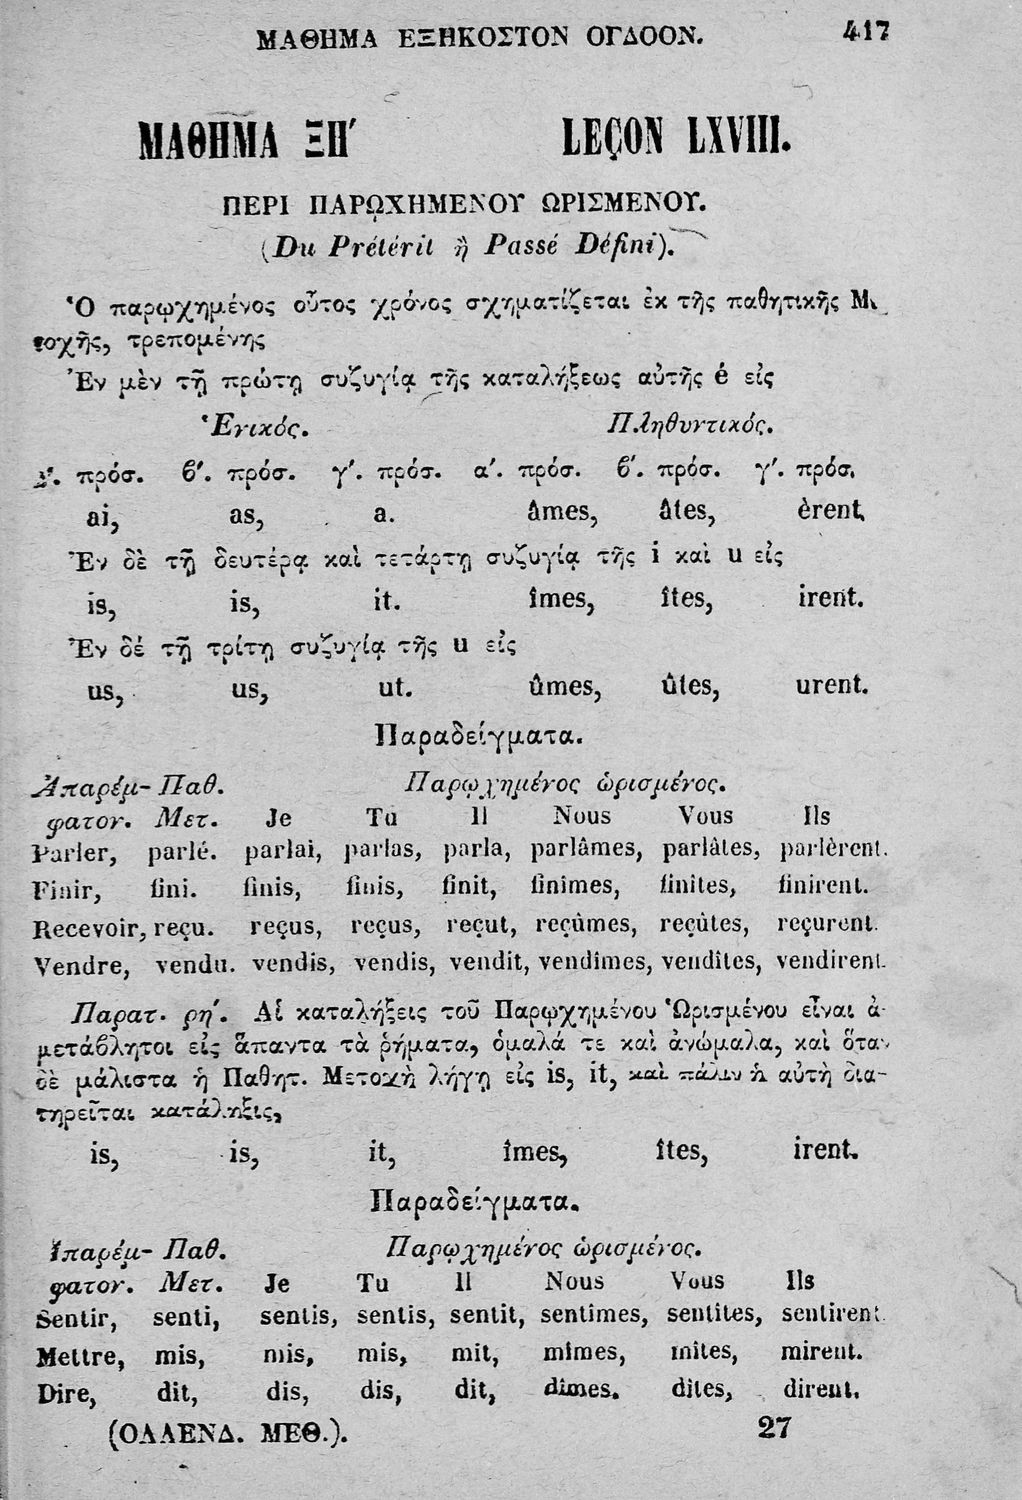 ΜΑΘΗΜΑ ΕΞΗΚΟΣΤΟΝ ΟΓΔΟΟΝ. 417
ΜΑΘΗΜΑ ΞΗ΄ LEÇON LXVIII.
ΠΕΡΙ ΠΑΡΩΧΗΜΕΝΟΥ ΩΡΙΣΜΕΝΟΥ.
(Du Prétérit ἢ Passé Défini).
Ὁ παρῳχημένος οὗτος χρόνος σχηματίζεται ἐκ τῆς παθητικῆς Μ
τοχῆς, τρεπομένης
Ἐν μὲν τῇ πρώτῃ συζυγίᾳ τῆς καταλήξεως αὐτῆς é εἰς
Ἑνικός. Πληθυντικός.
α΄. πρόσ. β΄. πρόσ. γ΄. πρόσ. α΄. πρόσ. β΄. πρόσ. γ΄. πρόσ.
ai, as, a. âmes, âtes, èrent.
Ἐν δὲ τῇ δευτέρᾳ καὶ τετάρτῃ συζυγίᾳ τῆς i καὶ u εἰς
is, is, it. îmes, îtes, irent.
Ἐν δέ τῇ τρίτῃ συζυγίᾳ τῆς u εἰς
us, us, ut. ûmes, ûtes, urent.
Παραδείγματα.
Ἀπαρέμ- Παθ. Παρῳχημένος ὡρισμένος.
φατον. Μετ. Je Tu Il Nous Vous Ils
Parler, parlé. parlai, parlas, parla, parlâmes, parlâtes, parlèrent.
Finir, fini. finis, finis, finit, finîmes, finîtes, finirent.
Recevoir, reçu. reçus, reçus, reçut, reçûmes, reçûtes, reçurent.
Vendre, vendu. vendis, vendis, vendit, vendîmes, vendîtes, vendirent.
Παρατ. ρη΄. Αἱ καταλήξεις τοῦ Παρῳχημένου Ὡρισμένου εἶναι ἀ-
μετάβλητοι εἰς ἅπαντα τὰ ῥήματα, ὁμαλά τε καὶ ἀνώμαλα, καὶ ὅταν
δὲ μάλιστα ἡ Παθητ. Μετοχὴ λήγῃ εἰς is, it, καὶ πάλιν ἡ αὐτὴ δια-
τηρεῖται κατάληξις,
is, is, it, îmes, îtes, irent.
Παραδείγματα.
Ἀπαρέμ- Παθ. Παρῳχημένος ὡρισμένος.
φατον. Μετ. Je Tu Il Nous Vous Ils
Sentir, senti, sentis, sentis, sentit, sentîmes, sentîtes, sentirent.
Mettre, mis, mis, mis, mit, mîmes, mîtes, mirent.
Dire, dit, dis, dis, dit, dîmes. dîtes, dirent.
(ΟΛΛΕΝΔ. ΜΕΘ.). 27